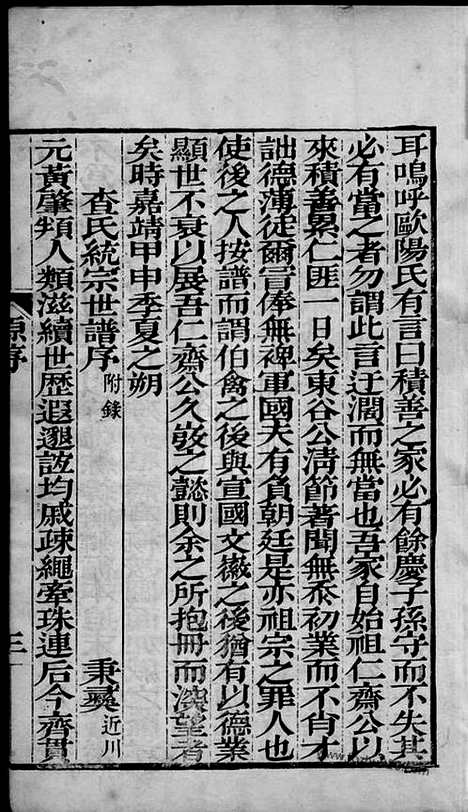 耳嗚呼歐陽氏有言曰積善之家必有餘慶子孫守而不失其
必有當之者勿謂此言迂濶而無當也吾家自始祖仁齋公以
來積善累仁匪一日矣東谷公清節著聞無忝初業而不肖才
詘德薄徒爾冒俸無裨軍國大有負朝廷是亦祖宗之罪人也
使後之人按譜而謂伯禽之後與宣國文徽之後猶有以德業
顯世不衰以展吾仁齋公久㪅之懿則余之所抱冊而深望者
矣時嘉靖甲申季夏之朔
查氏統宗世譜序 附錄 秉彞 近川
元黃肇𩔖人類滋續世歷遐邈誼均戚疎繩牽珠連后今齊貫
原序 三